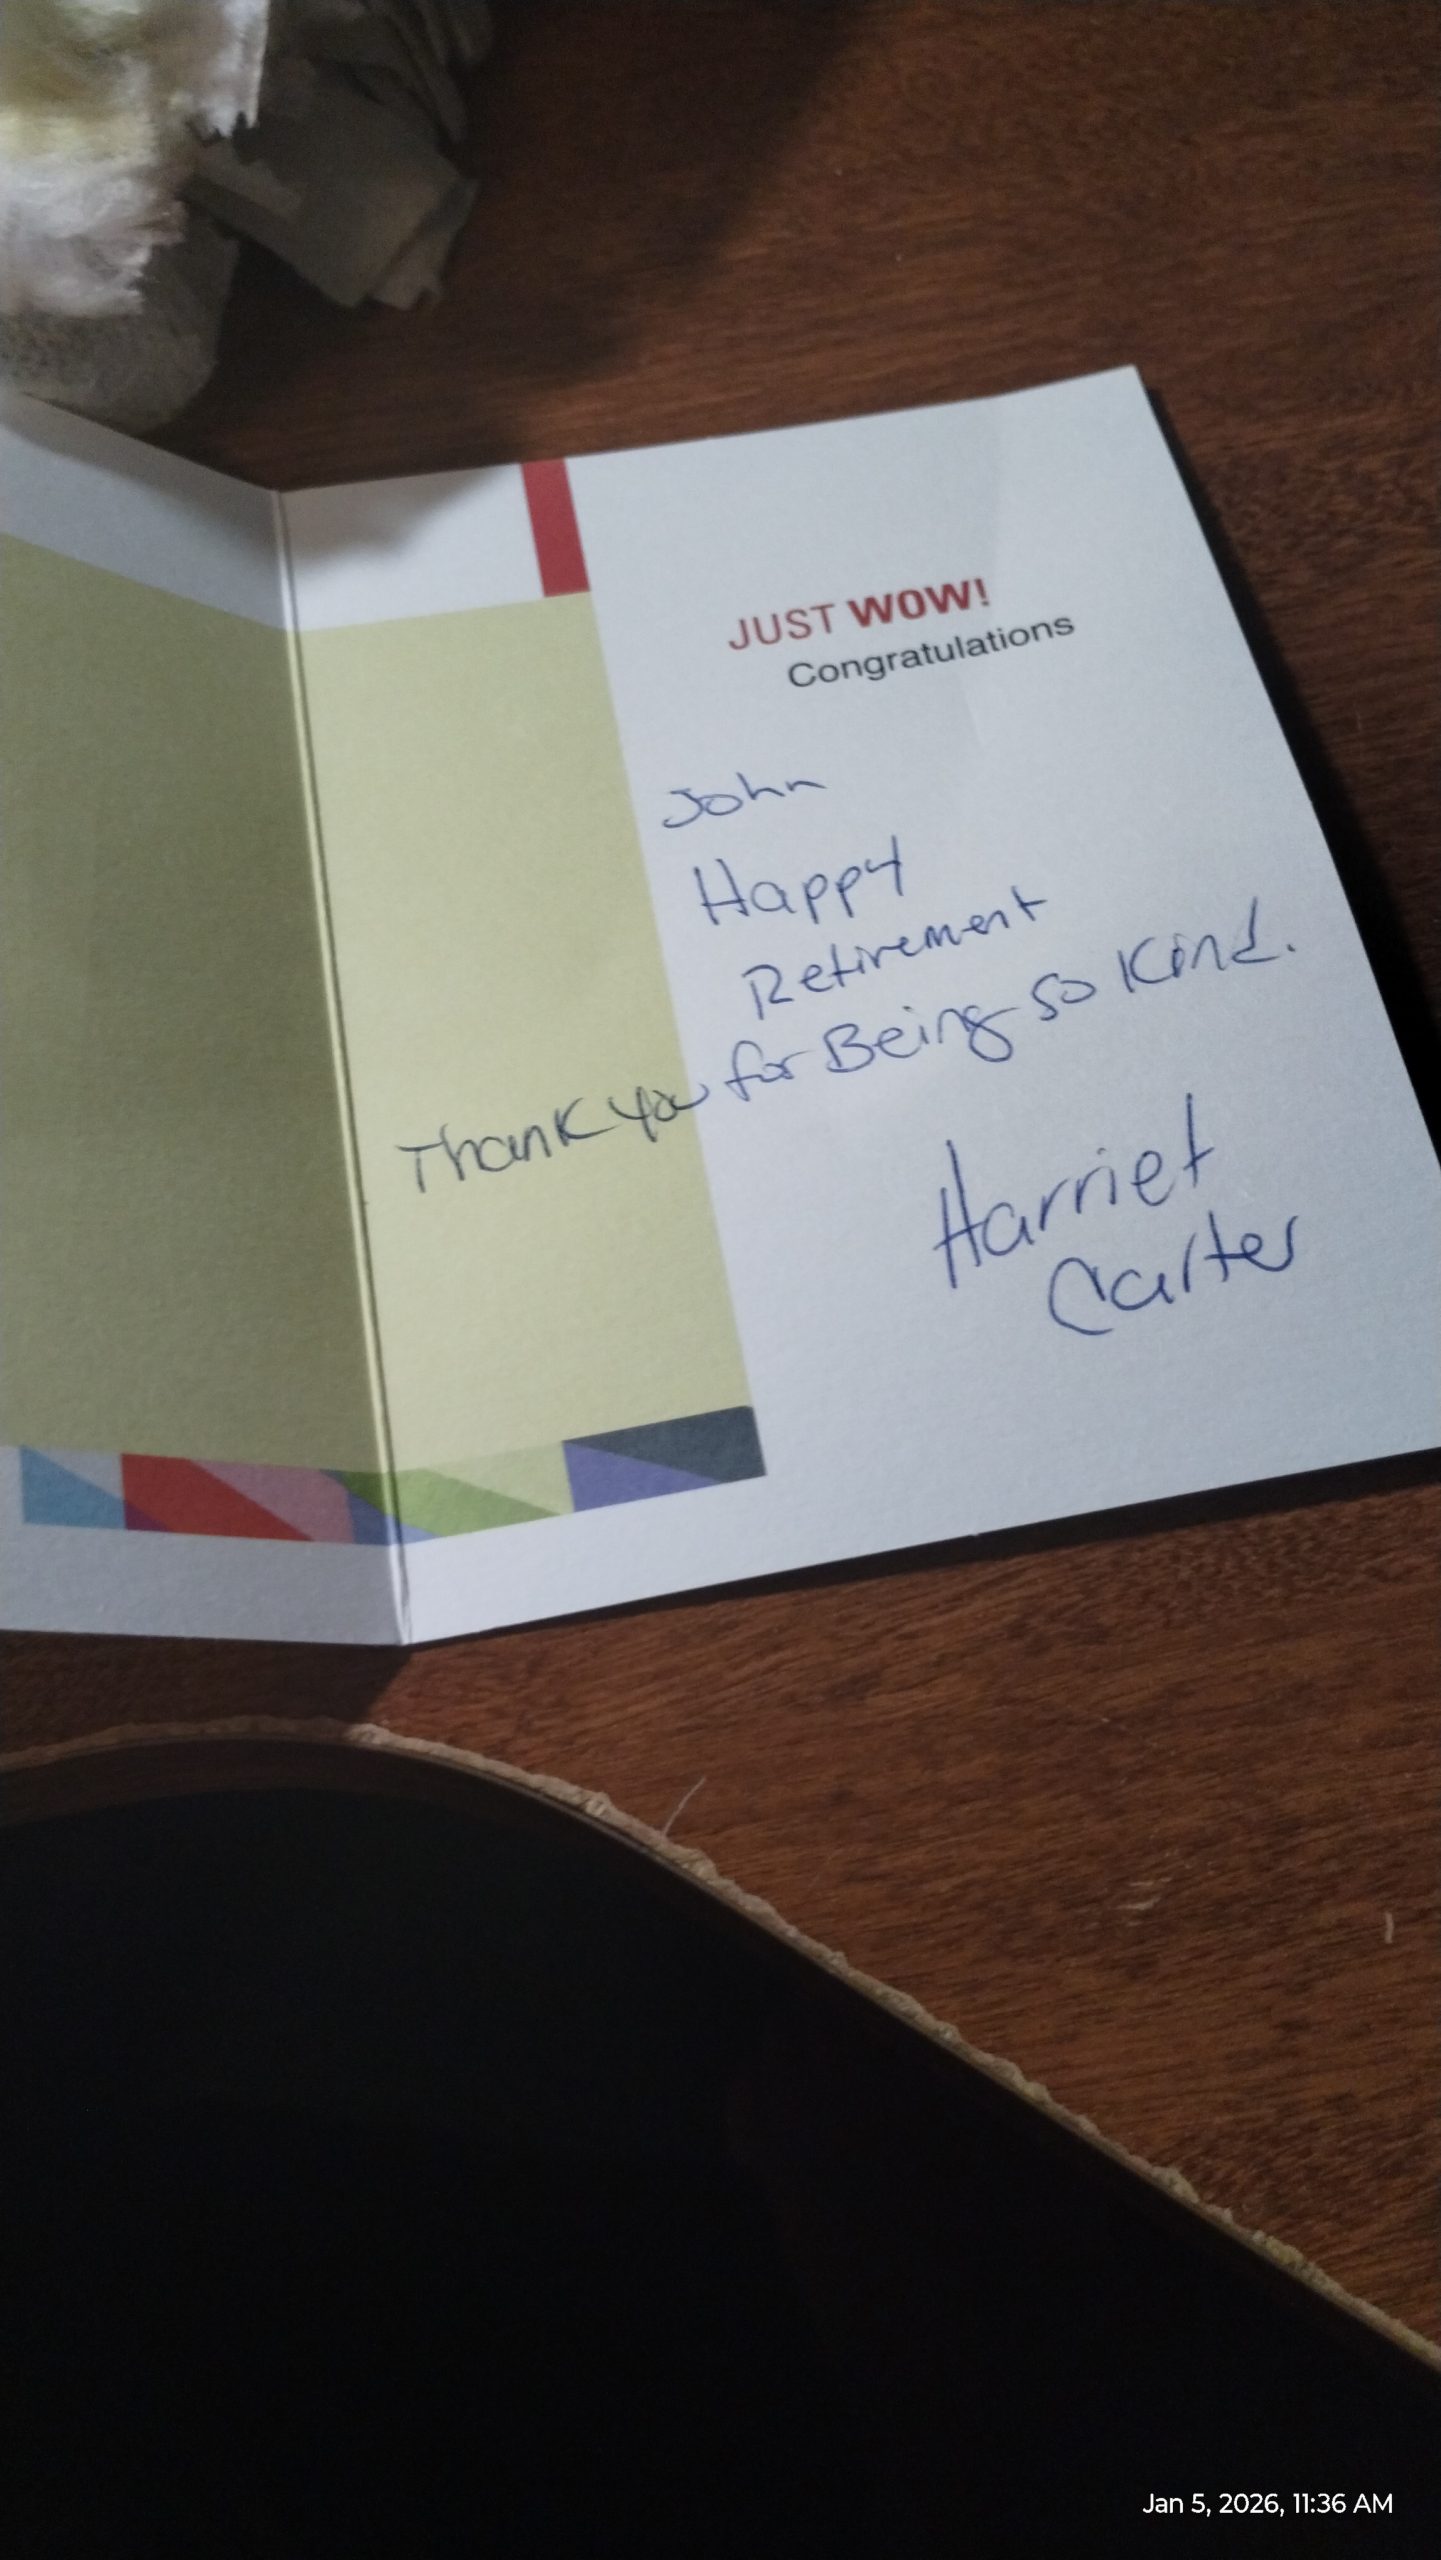 JUST WOW!
Congratulations
John
Happy
Retirement
Thank you for Being so Kind.
Harriet
Carter
Jan 5, 2026, 11:36 AM